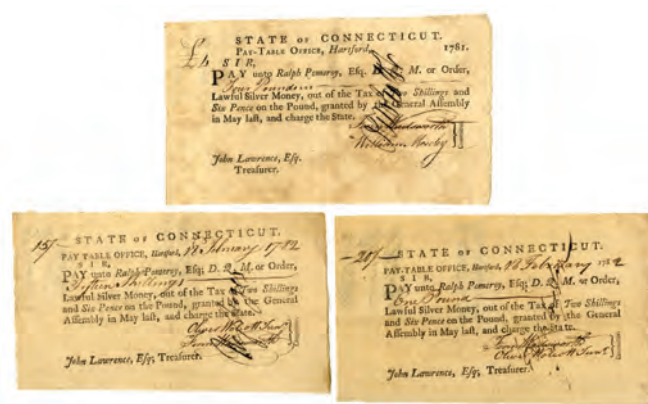 STATE OF CONNECTICUT.
PAY-TABLE OFFICE, Hartford, 1781.
£4 SIR,
PAY unto Ralph Pomeroy, Esq. D. Q. M. or Order,
Four Pounds
Lawful Silver Money, out of the Tax of Two Shillings
and Six Pence on the Pound, granted by the General Assembly
in May last, and charge the State.
William Mosely
John Lawrence, Esq.
Treasurer.
15/ STATE OF CONNECTICUT.
PAY TABLE OFFICE, Hartford, 18 February 1782
SIR,
PAY unto Ralph Pomeroy, Esq; D. Q. M. or Order,
Fifteen Shillings
Lawful Silver Money, out of the Tax of Two Shillings
and Six Pence on the Pound, granted by the General
Assembly in May last, and charge the State.
Oliver Wolcott Junr
John Lawrence, Esq; Treasurer.
20/ STATE OF CONNECTICUT.
PAY-TABLE OFFICE, Hartford, 18 February 1782
SIR,
PAY unto Ralph Pomeroy, Esq; D. Q. M. or Order,
One Pound
Lawful Silver Money, out of the Tax of Two Shillings
and Six Pence on the Pound, granted by the General
Assembly in May last, and charge the State.
Oliver Wolcott Junr
John Lawrence, Esq; Treasurer.